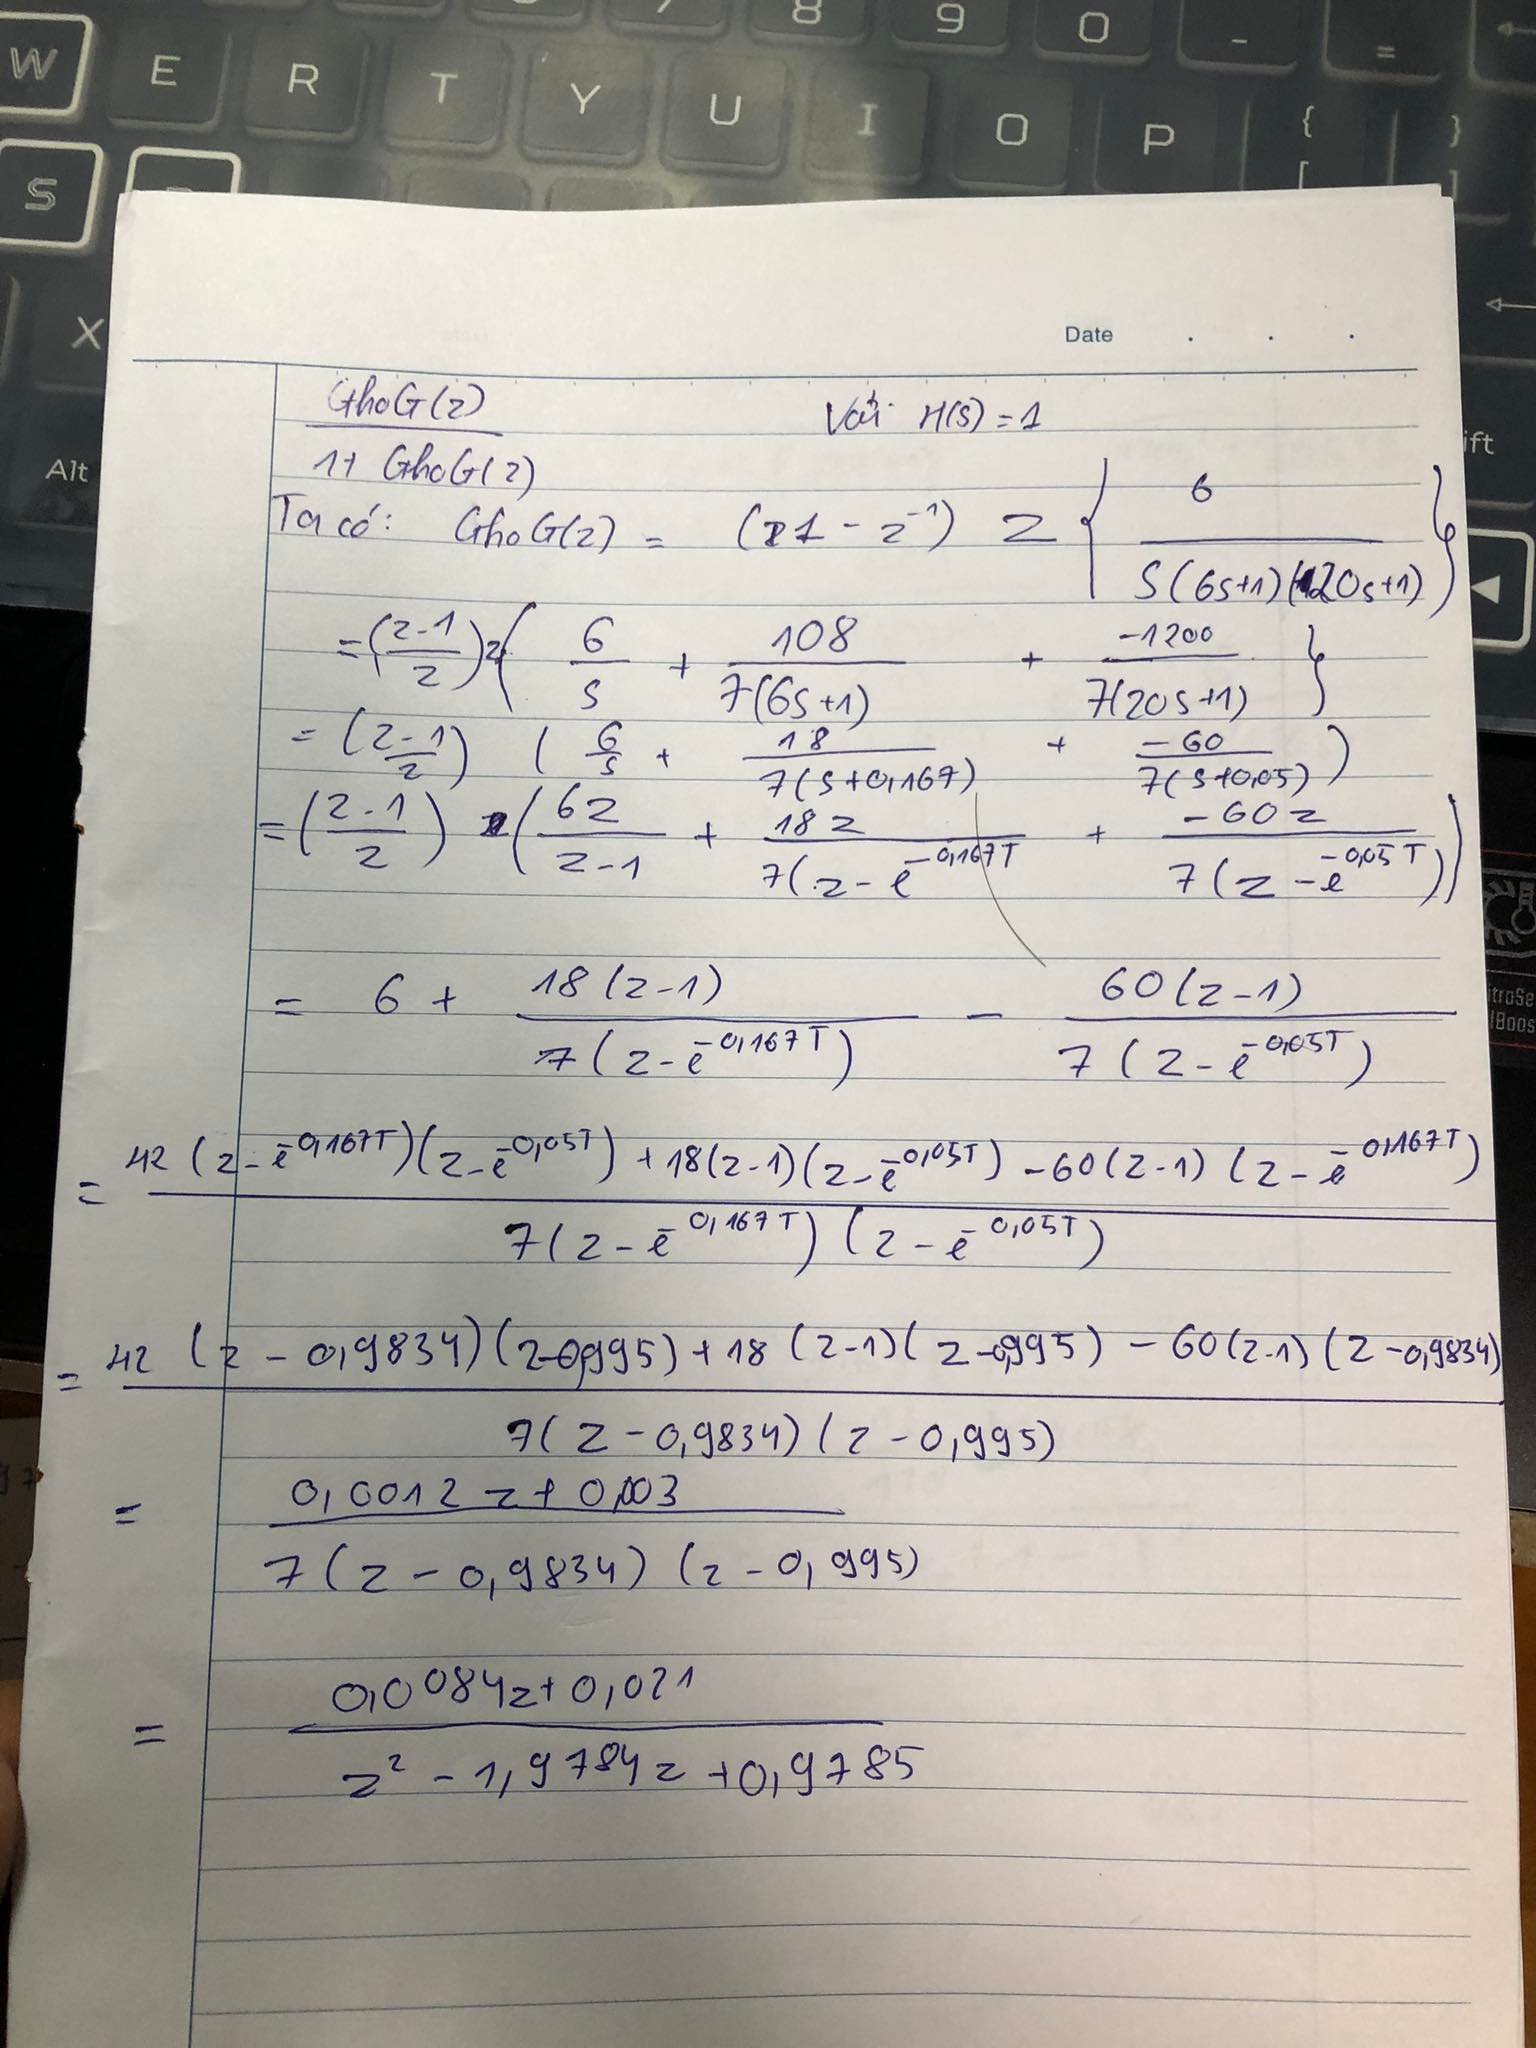 7 8 9 0 - =
W E R T Y U I O P { [ } ]
S
X
Alt
ift
Date . . .
GhoG(z) / 1+ GhoG(z) Với H(s) = 1
Ta có: GhoG(z) = (1 - z⁻¹) Z { 6 / S(6s+1)(20s+1) }
= (z-1 / z) z { 6/s + 108 / 7(6s+1) + -1200 / 7(20s+1) }
= (z-1 / z) ( 6/s + 18 / 7(s+0,167) + -60 / 7(s+0,05) )
= (z-1 / z) ( 6z / z-1 + 18z / 7(z - e^-0,167T + -60z / 7(z - e^-0,05T) )
= 6 + 18(z-1) / 7(z - e^-0,167T) - 60(z-1) / 7(z - e^-0,05T)
= 42(z - e^-0,167T)(z - e^-0,05T) + 18(z-1)(z - e^-0,05T) - 60(z-1)(z - e^-0,167T) / 7(z - e^-0,167T)(z - e^-0,05T)
= 42(z - 0,9834)(z-0,995) + 18(z-1)(z-0,995) - 60(z-1)(z-0,9834) / 7(z - 0,9834)(z - 0,995)
= 0,0012z + 0,003 / 7(z - 0,9834)(z - 0,995)
= 0,0084z + 0,021 / z² - 1,9784z + 0,9785